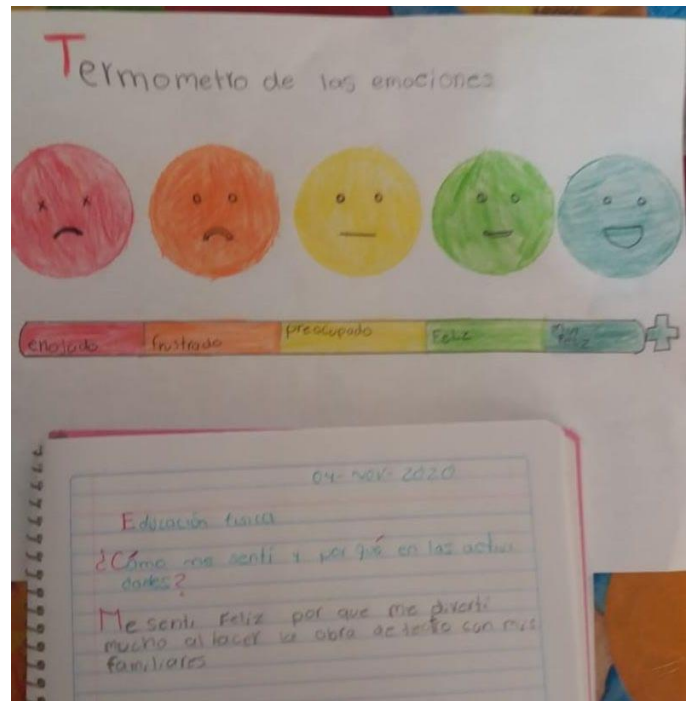 Termometro de las emociones
enojado
frustrado
preocupado
Feliz
Muy
Feliz
04-Nov-2020
Educación fisica
¿Cómo me sentí y por qué en las activi
dades?
Me sentí Feliz por que me divertí
mucho al hacer la obra de teatro con mis
familiares